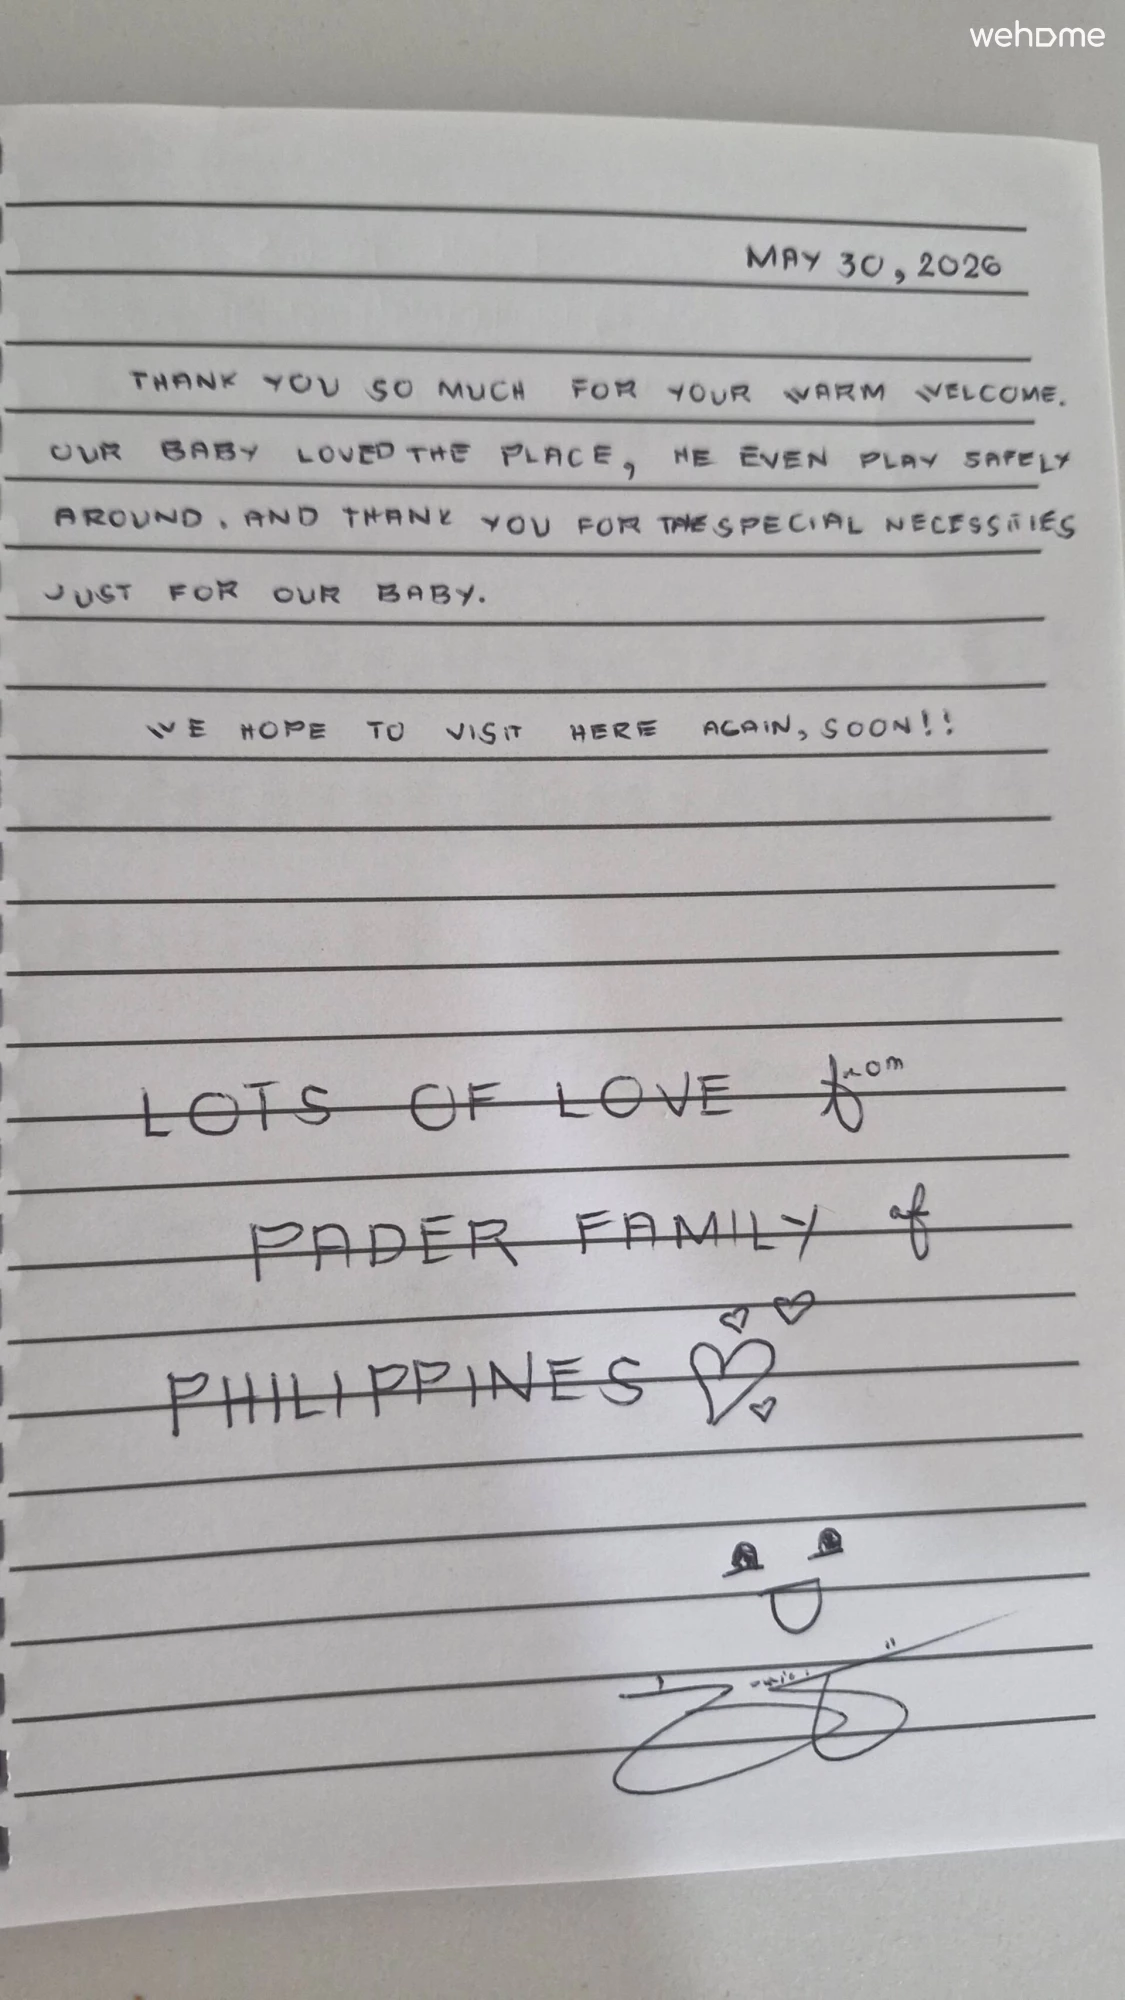 wehome
MAY 30, 2026
THANK YOU SO MUCH FOR YOUR WARM WELCOME.
OUR BABY LOVED THE PLACE, HE EVEN PLAY SAFELY
AROUND. AND THANK YOU FOR THE SPECIAL NECESSITIES
JUST FOR OUR BABY.
WE HOPE TO VISIT HERE AGAIN, SOON!!
LOTS OF LOVE from
PADER FAMILY of
PHILIPPINES